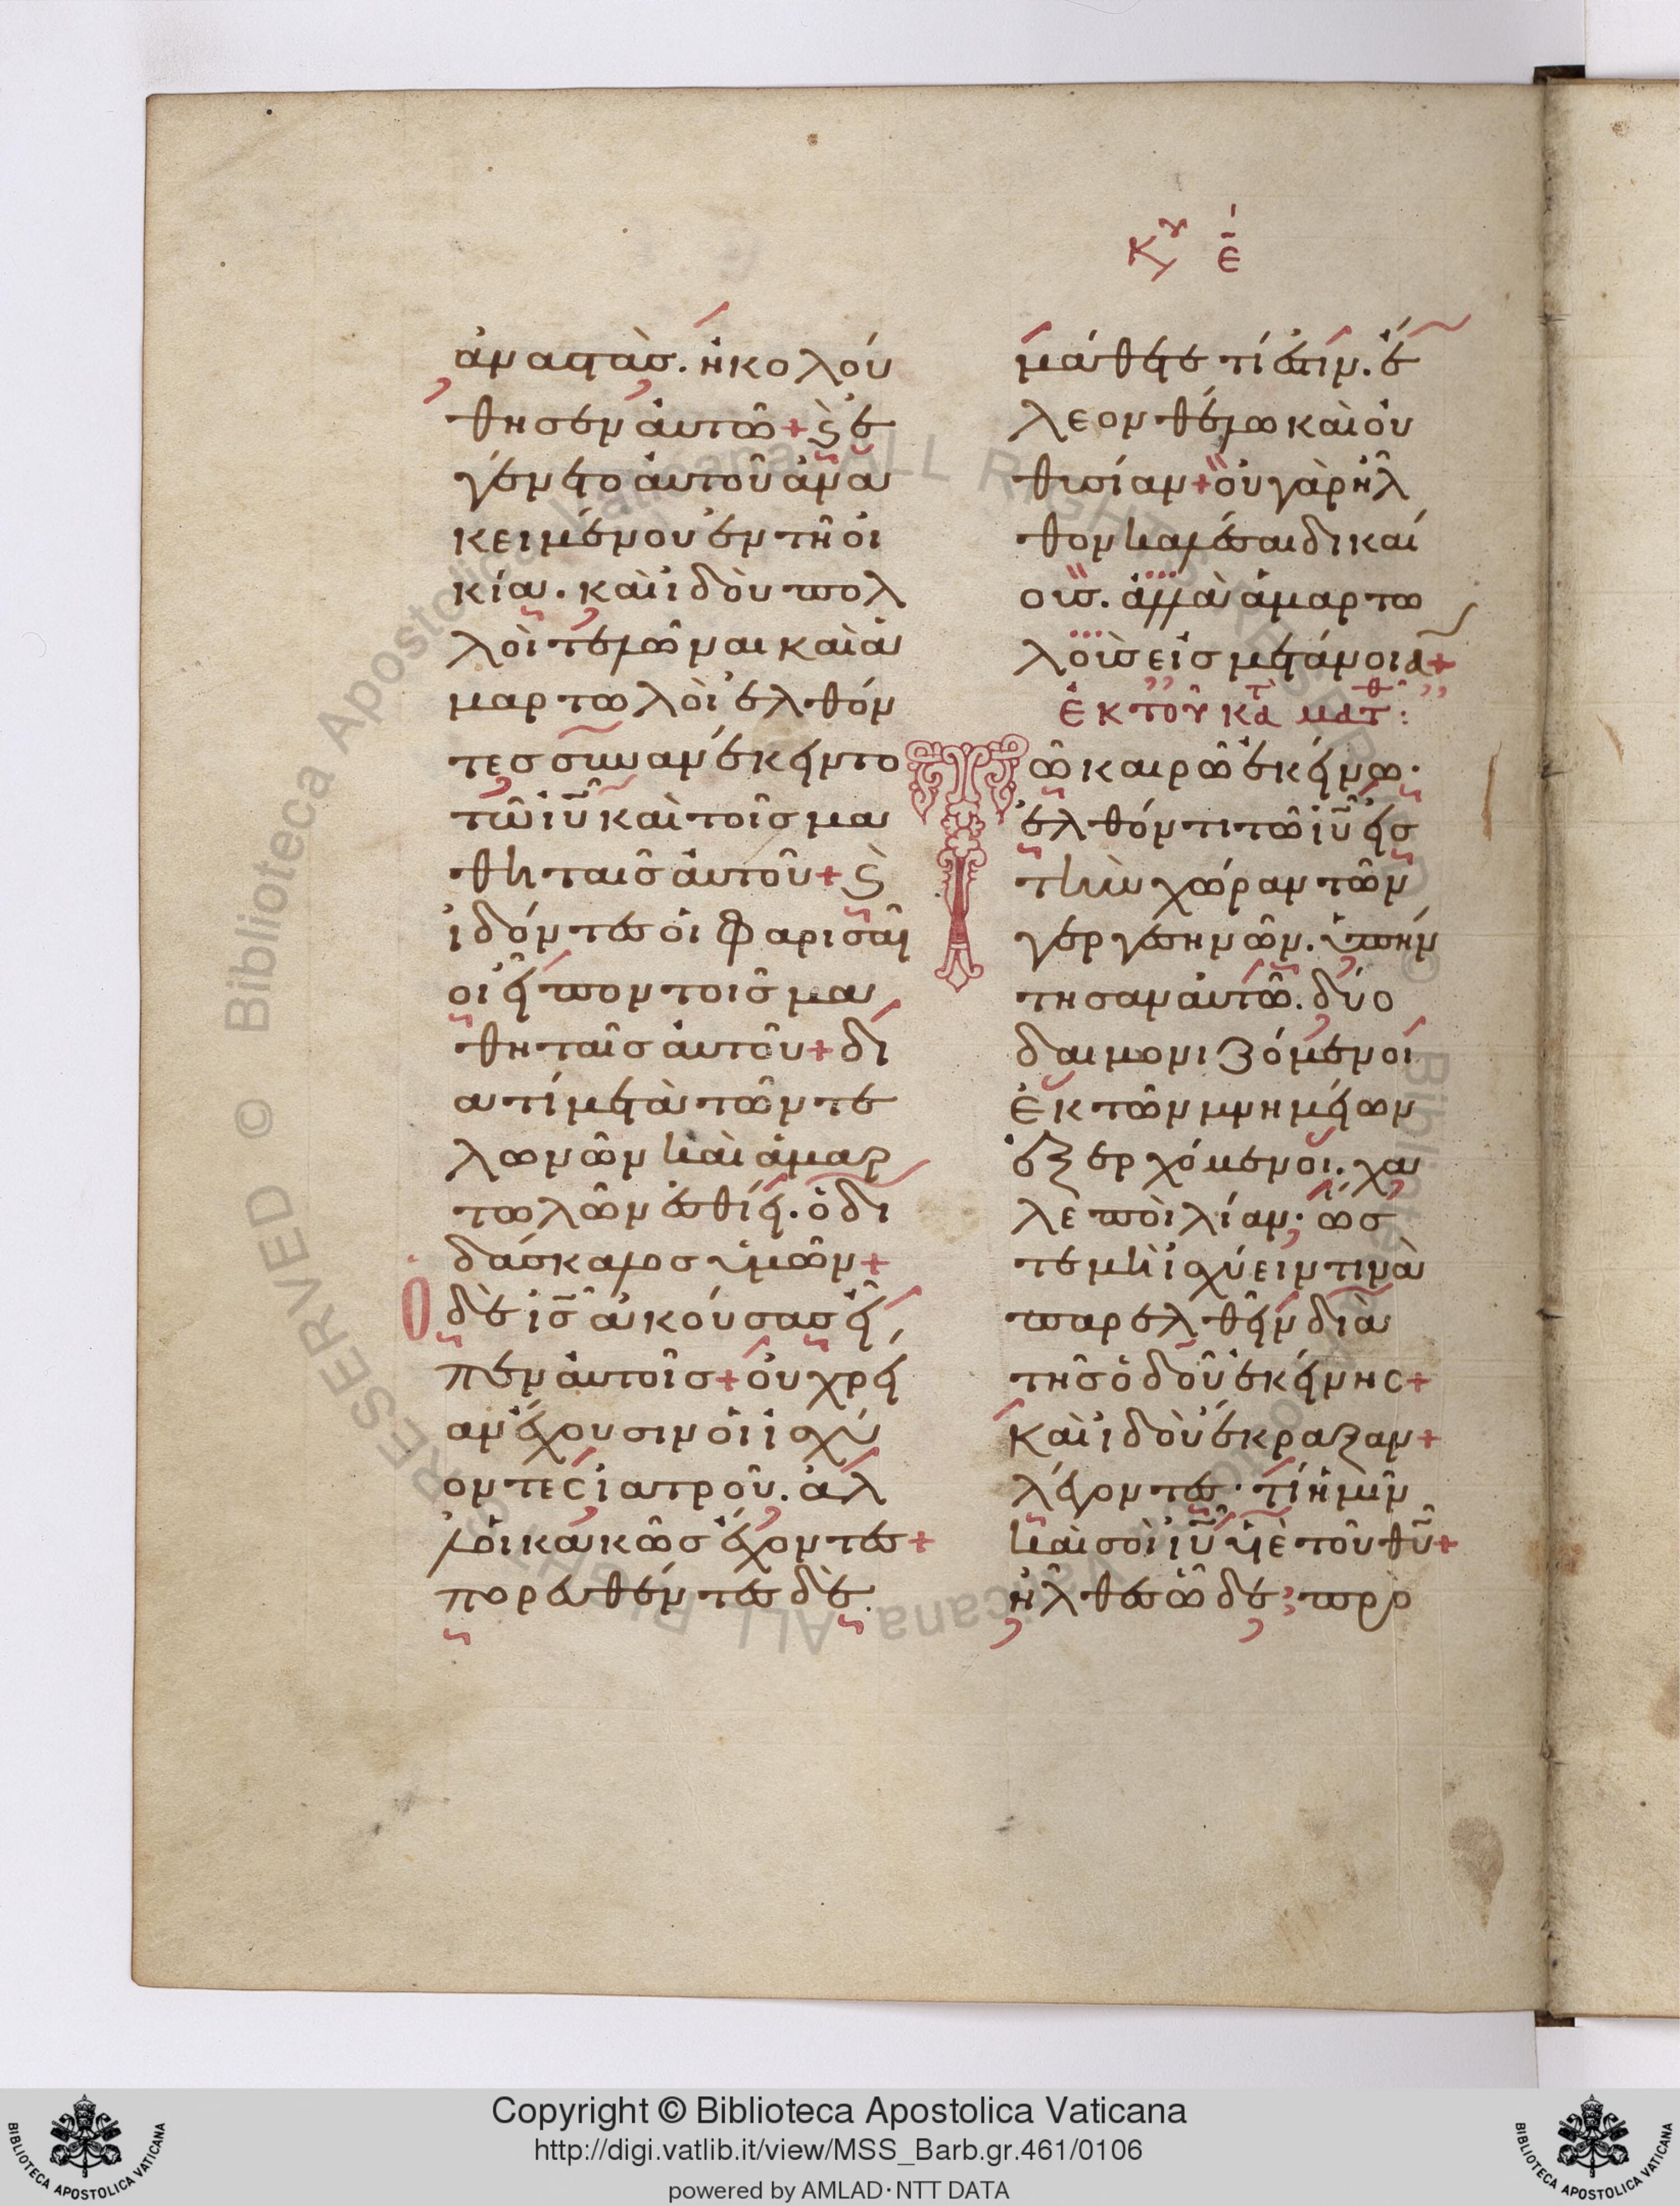 ἀναστὰσ. ἠκολού
θησεν αὐτῶ + ϗ ἐ
γένετο αὐτοῦ ἀνα
κειμένου ἐν τῆ οἰ
κία. καὶ ἰδοὺ πολ
λοὶ τελῶναι καὶ ἁ
μαρτωλοὶ ἐλθόν
τεσ συνανέκειντο
τῶ ἰῦ καὶ τοῖσ μα
θηταῖσ αὐτοῦ + ϗ
ἰδόντεσ οἱ φαρισαῖ
οι εἶπον τοῖσ μα
θηταῖσ αὐτοῦ + δι
ατί μετὰ τῶν τε
λωνῶν καὶ ἁμαρ
τωλῶν ἐσθίει. ὁ δι
δάσκαλοσ ὑμῶν +
Ὁ δὲ ἰσ ἀκούσασ εἶ
πεν αὐτοῖσ + οὐ χρεί
αν ἔχουσιν οἱ ἰσχύ
οντεσ ἰατροῦ. ἀλ
λ οἱ κακῶσ ἔχοντεσ +
πορευθέντεσ δὲ
Κυ ε
μάθετε τί ἐστιν. ἔ
λεον θέλω καὶ οὐ
θυσίαν + οὐ γὰρ ἦλ
θον καλέσαι δικαί
ουσ. ἀλλὰ ἁμαρτω
λοὺσ εἰσ μετάνοιαν +
ἐκ τοῦ κατὰ ματθ :
Τῶ καιρῶ ἐκείνω.
ἐλθόντι τῶ ἰῦ εἰσ
τὴν χώραν τῶν
γεργεσηνῶν. ὑπήν
τησαν αὐτῶ. δύο
δαιμονιζόμενοι
ἐκ τῶν μνημείων
ἐξερχόμενοι. χα
λεποὶ λίαν. ὥσ
τε μὴ ἰσχύειν τινὰ
παρελθεῖν διὰ
τῆσ ὁδοῦ ἐκείνησ +
καὶ ἰδοὺ ἔκραξαν +
λέγοντεσ. τί ἡμῖν
καὶ σοὶ ἰῦ υἱὲ τοῦ θῦ +
ἦλθεσ ὧδε; πρὸ
Copyright © Biblioteca Apostolica Vaticana
http://digi.vatlib.it/view/MSS_Barb.gr.461/0106
powered by AMLAD·NTT DATA